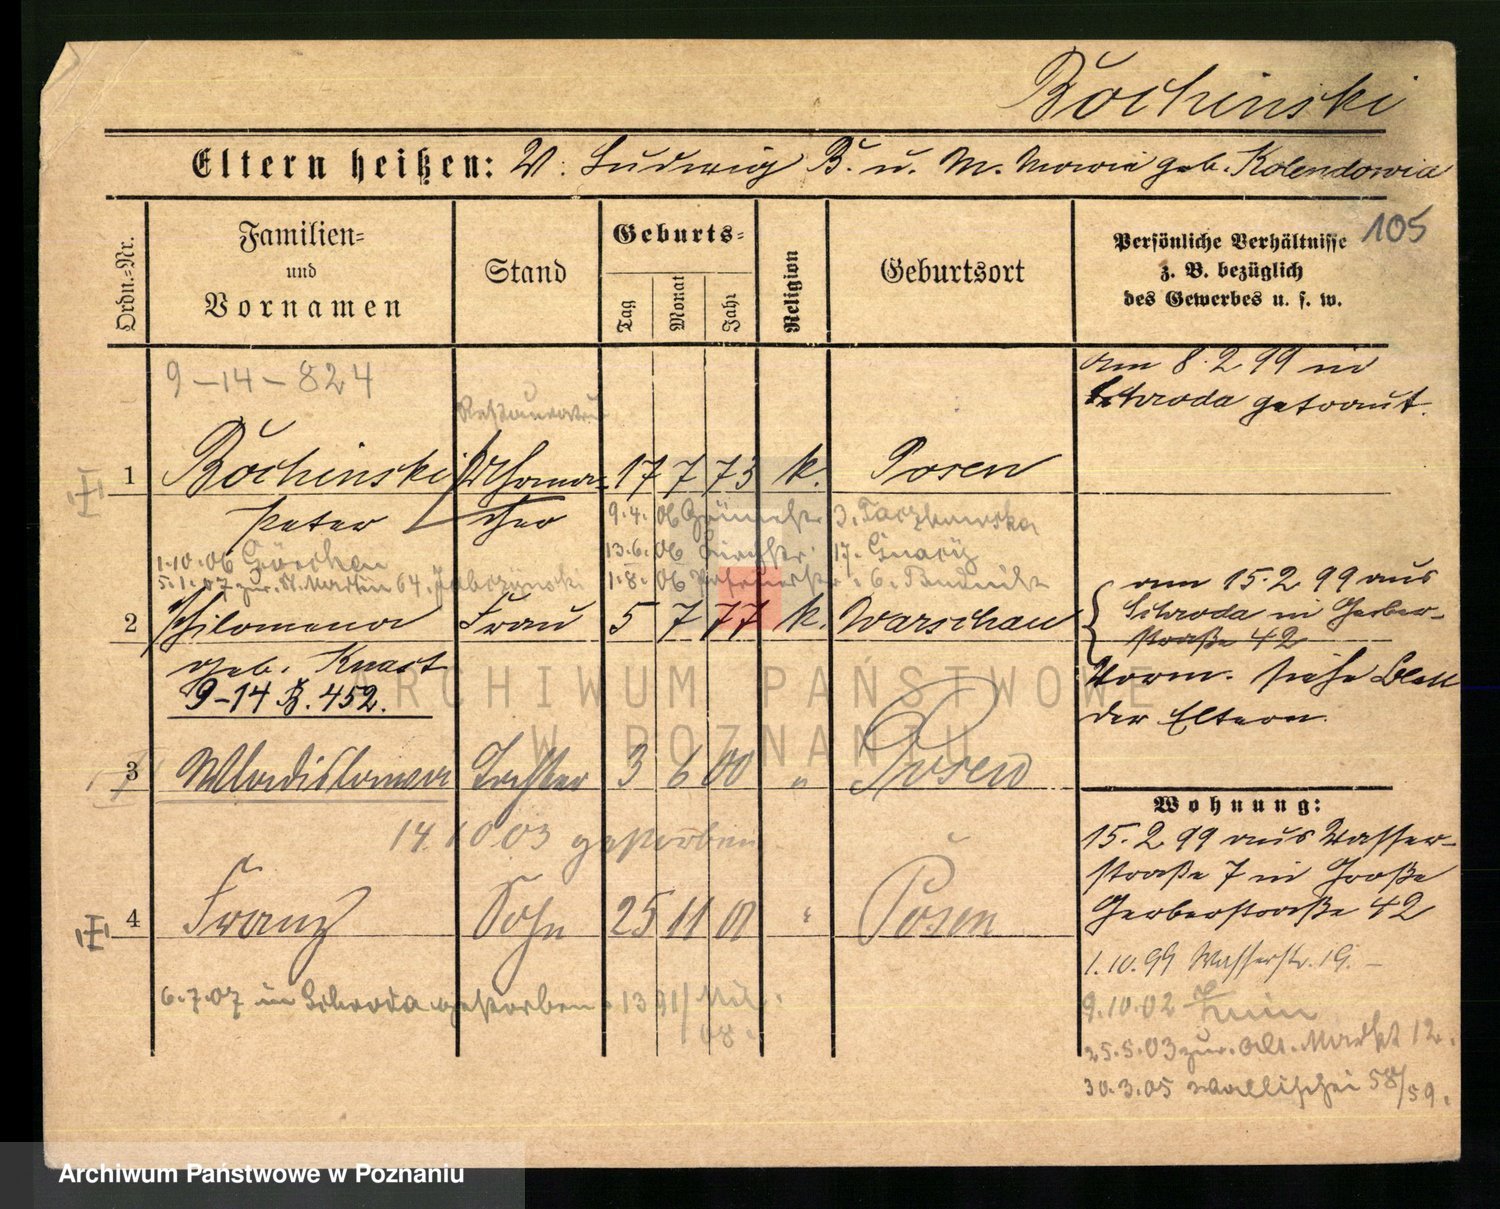 Bochinski
Eltern heißen: V. Ludwig B. u. M. Marie geb. Kolendowicz
105
Ordn.=Nr.
Familien=
und
Vornamen
Stand
Geburts=
Tag
Monat
Jahr
Religion
Geburtsort
Persönliche Verhältnisse
z. B. bezüglich
des Gewerbes u. s. w.
9-14-824
Restaurateur
am 8.2 99 in
Schroda getraut.
1 Bochinski 17 7 73 k. Posen
Peter
9.4.06 3.
1.10.06 Görchen
13.6.06 17.
5.1.07 zur. St. Martin 64.
1.8.06 6.
2 Philomena Frau 5 7 77 k. Warschau
geb. Knast
9-14 B. 452.
am 15.2 99 aus
Schroda in Gerber-
straße 42
Vorm. siehe Blatt
der Eltern.
3 Wladislawa Tochter 3 6 00 " Posen
14.10 03 gestorben
4 Franz Sohn 25 11 01 " Posen
6.7.07 in Schroda gestorben. 1391/
08.
Wohnung:
15.2 99 aus Wasser-
straße 7 in Große
Gerberstraße 42
1.10.99 Wasserstr. 19. -
9.10.02
25.5.03 zur. Alt. Markt 12.
30.3.05 Wallischei 58/59.
ARCHIWUM PAŃSTWOWE
W POZNANIU
Archiwum Państwowe w Poznaniu